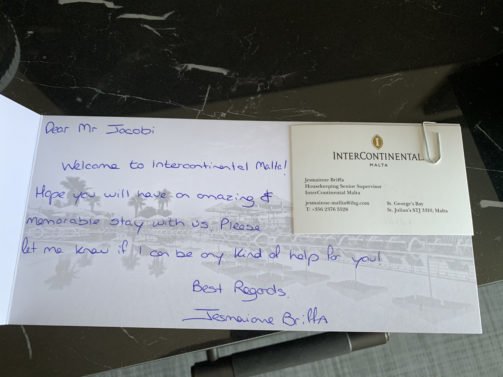 Dear Mr Jacobi
Welcome to Intercontinental Malta!
Hope you will have an amazing &
memorable stay with us. Please
let me know if I can be any kind of help for you!
Best Regards,
Jesmaione Briffa
INTERCONTINENTAL
MALTA
Jesmairose Briffa
Housekeeping Senior Supervisor
InterContinental Malta
St. George's Bay
St. Julian's STJ 3310, Malta